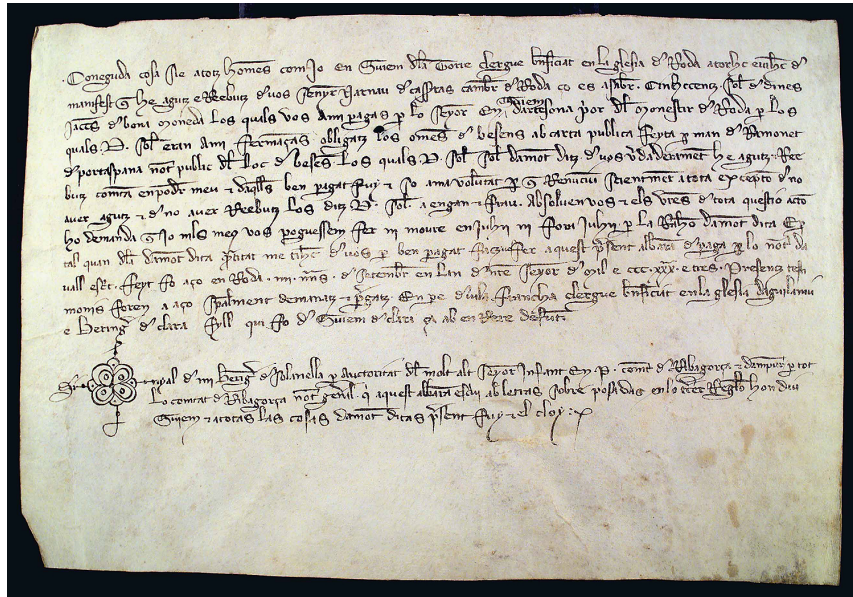 Coneguda cosa sie a totz homes com Jo en Guiem dla Torre clergue bnfficiat en la glesia d Roda atorch e
manifest q he agutz e Reebutz d vos senyer Narnau d cambr d Roda ço es asabr Cinhccentz sol d dines
Jacces d bona moneda Los quals vos Ami pagas p lo senyor En Guiem dor d monestir d Roda p los
quals D sol eran Ami fermanças obligatz los omes d besens ab carta publica feyta p man d Ramonet
d portaspana not public dl loc d besens Los quals D sol damot ditz d vos vdaderament he agutz Ree
butz comta en podr meu ben pagat fuy so ama volutat p q Renuciu scientmet a tota excepcio d no
aver agutz d no aver Reebutz los ditz D sol a engan frau Absolven vos els vres d tota questio
demanda q Jo nils meus vos poguessem fer ni moure en juhii ni fora juhii p la Raho damot dita
tal quan dl damot dita me d vos p ben pagat fer aquest psent albara d paga p lo not da
vall escrit feyt fo aço en Roda IIII d Setembr en lan d nre senyor d Mil e CCC XXX e tres Presentz testi
monis foren a aço spalment demanatz pgatz En pe d clergue bnfficiat en la glesia daguilaniu
e Bering d clara fyll qui fo d Guiem d clara ça en
Se nyal d mi Bering d Solanella p auctoritat dl molt alt seyor Infant En P comt d Ribagorça dampur p tot
Lo comtat d Ribagorça not genal q aquest albara escriu ab letras sobre posadas en lo Reglo hon diu
Guiem a totas las cosas damot ditas psent fuy el cloy